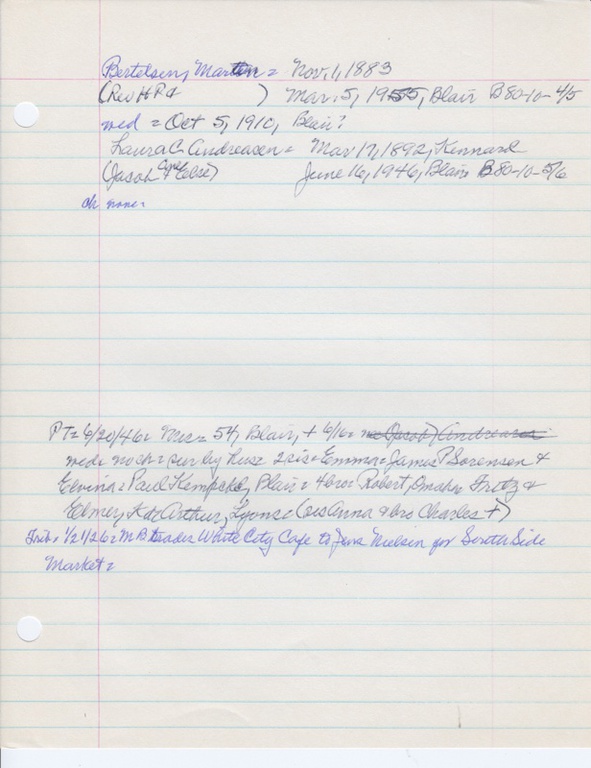 Bertelsen, Martin = Nov. 1, 1883
(Rev H P & ) Mar. 5, 1955, Blair B80-10-4/5
wed = Oct 5, 1910, Blair?
Laura C. Andreasen = Mar 17, 1892, Kennard
(Jacob & Else) June 16, 1946, Blair B80-10-5/6
ch none =
PT= 6/20/46= Mrs = 54, Blair, + 6/16= Andreasen
wed = no ch = sur by husz 2 sis = Emma = James P Sorensen &
Elvina = Paul Kempcke, Blair = 4 bro = Robert, Omaha, Fretz &
Elmer, K & Arthur, Lyons = (sis Anna & bro Charles +)
Trib = 1/21/26 = M B trades White City Cafe to Jens Nielsen for South Side
Market =